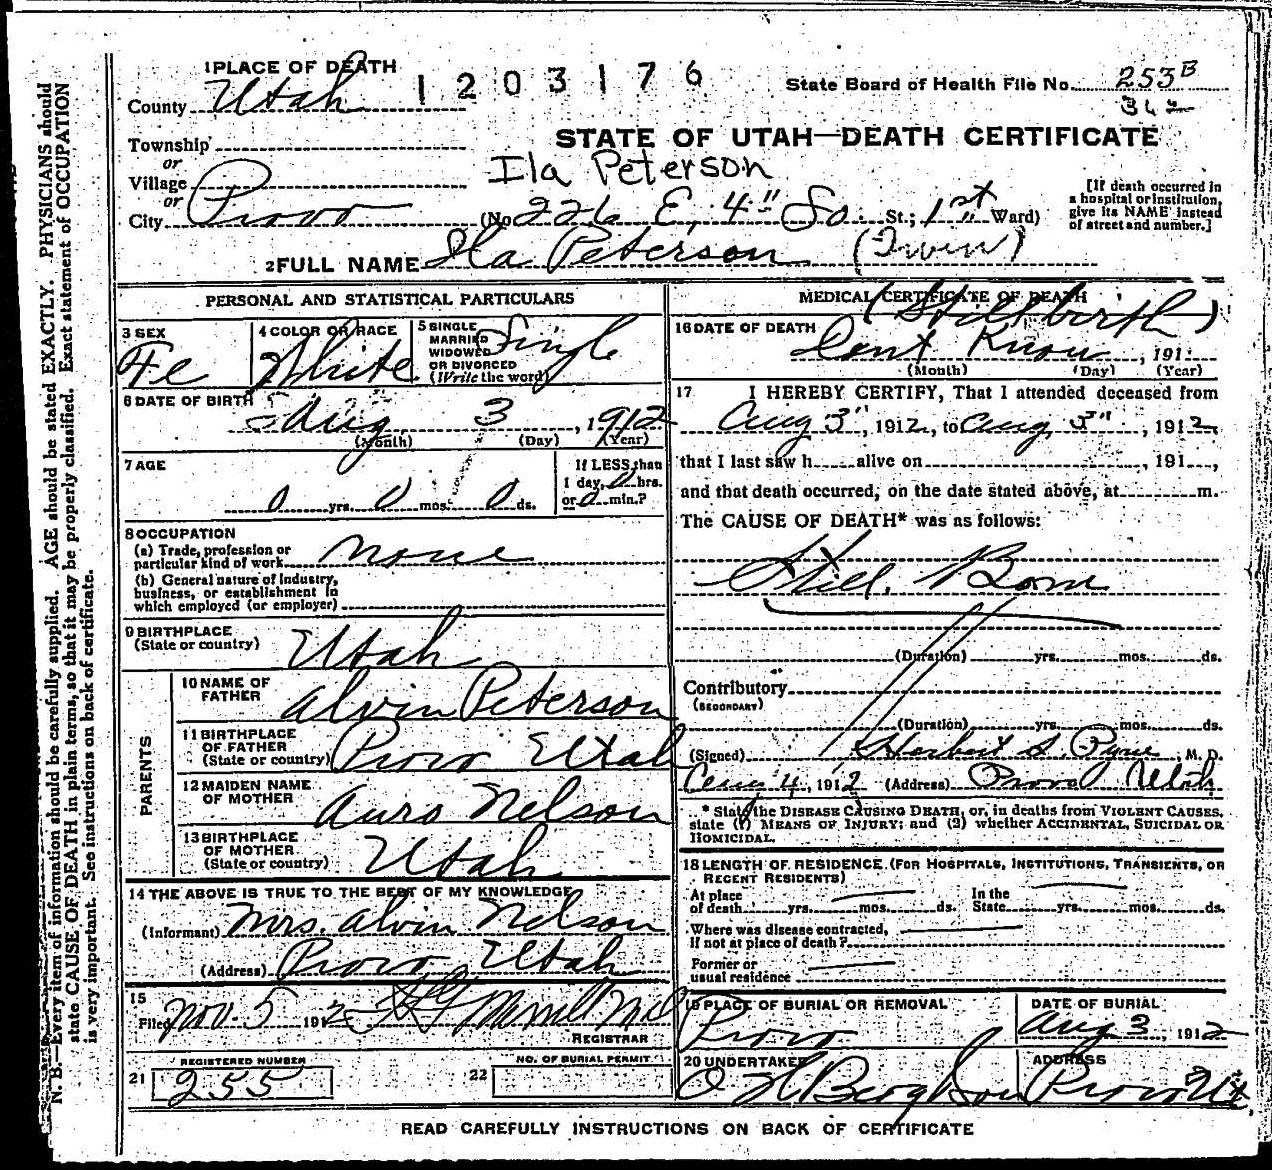 1 PLACE OF DEATH
1203176
State Board of Health File No. 253 B
County Utah
STATE OF UTAH—DEATH CERTIFICATE
Township
or
Village
or
City Provo
Ila Peterson
(No. 226 E. 4" So. St.; 1st Ward)
[If death occurred in
a hospital or institution,
give its NAME instead
of street and number.]
2 FULL NAME Ila Peterson (Twin)
PERSONAL AND STATISTICAL PARTICULARS
3 SEX
Fe
4 COLOR OR RACE
White
5 SINGLE
MARRIED
WIDOWED
OR DIVORCED
(Write the word)
Single
6 DATE OF BIRTH
Aug 3, 1912
(Month) (Day) (Year)
7 AGE
0 yrs. 0 mos. 0 ds.
If LESS than
1 day, 0 hrs.
or 0 min.?
8 OCCUPATION
(a) Trade, profession or
particular kind of work none
(b) General nature of Industry,
business, or establishment in
which employed (or employer)
9 BIRTHPLACE
(State or country) Utah
PARENTS
10 NAME OF
FATHER Alvin Peterson
11 BIRTHPLACE
OF FATHER
(State or country) Provo Utah
12 MAIDEN NAME
OF MOTHER Auro Nelson
13 BIRTHPLACE
OF MOTHER
(State or country) Utah
14 THE ABOVE IS TRUE TO THE BEST OF MY KNOWLEDGE
(Informant) Mrs. Alvin Nelson
(Address) Provo, Utah
15
Filed Nov. 5 1912 Merrill MD
REGISTRAR
21 REGISTERED NUMBER
255
22 NO. OF BURIAL PERMIT
MEDICAL CERTIFICATE OF DEATH
(Stillbirth)
16 DATE OF DEATH
Dont Know, 191
(Month) (Day) (Year)
17 I HEREBY CERTIFY, That I attended deceased from
Aug 3", 1912, to Aug 3", 1912
that I last saw h alive on , 191 ,
and that death occurred, on the date stated above, at m.
The CAUSE OF DEATH* was as follows:
Still Born
(Duration) yrs. mos. ds.
Contributory
(SECONDARY)
(Duration) yrs. mos. ds.
(Signed) Herbert S. Pyne, M. D.
Aug 4, 1912 (Address) Provo Utah
* State the DISEASE CAUSING DEATH, or, in deaths from VIOLENT CAUSES,
state (1) MEANS OF INJURY; and (2) whether ACCIDENTAL, SUICIDAL OR
HOMICIDAL.
18 LENGTH OF RESIDENCE (FOR HOSPITALS, INSTITUTIONS, TRANSIENTS, OR
RECENT RESIDENTS)
At place
of death yrs. mos. ds.
In the
State yrs. mos. ds.
Where was disease contracted,
if not at place of death?
Former or
usual residence
19 PLACE OF BURIAL OR REMOVAL
Provo
DATE OF BURIAL
Aug 3, 1912
20 UNDERTAKER
O H Berg & Son
ADDRESS
Provo Ut
READ CAREFULLY INSTRUCTIONS ON BACK OF CERTIFICATE
N. B.—Every item of information should be carefully supplied. AGE should be stated EXACTLY. PHYSICIANS should
state CAUSE OF DEATH in plain terms, so that it may be properly classified. Exact statement of OCCUPATION
is very important. See instructions on back of certificate.